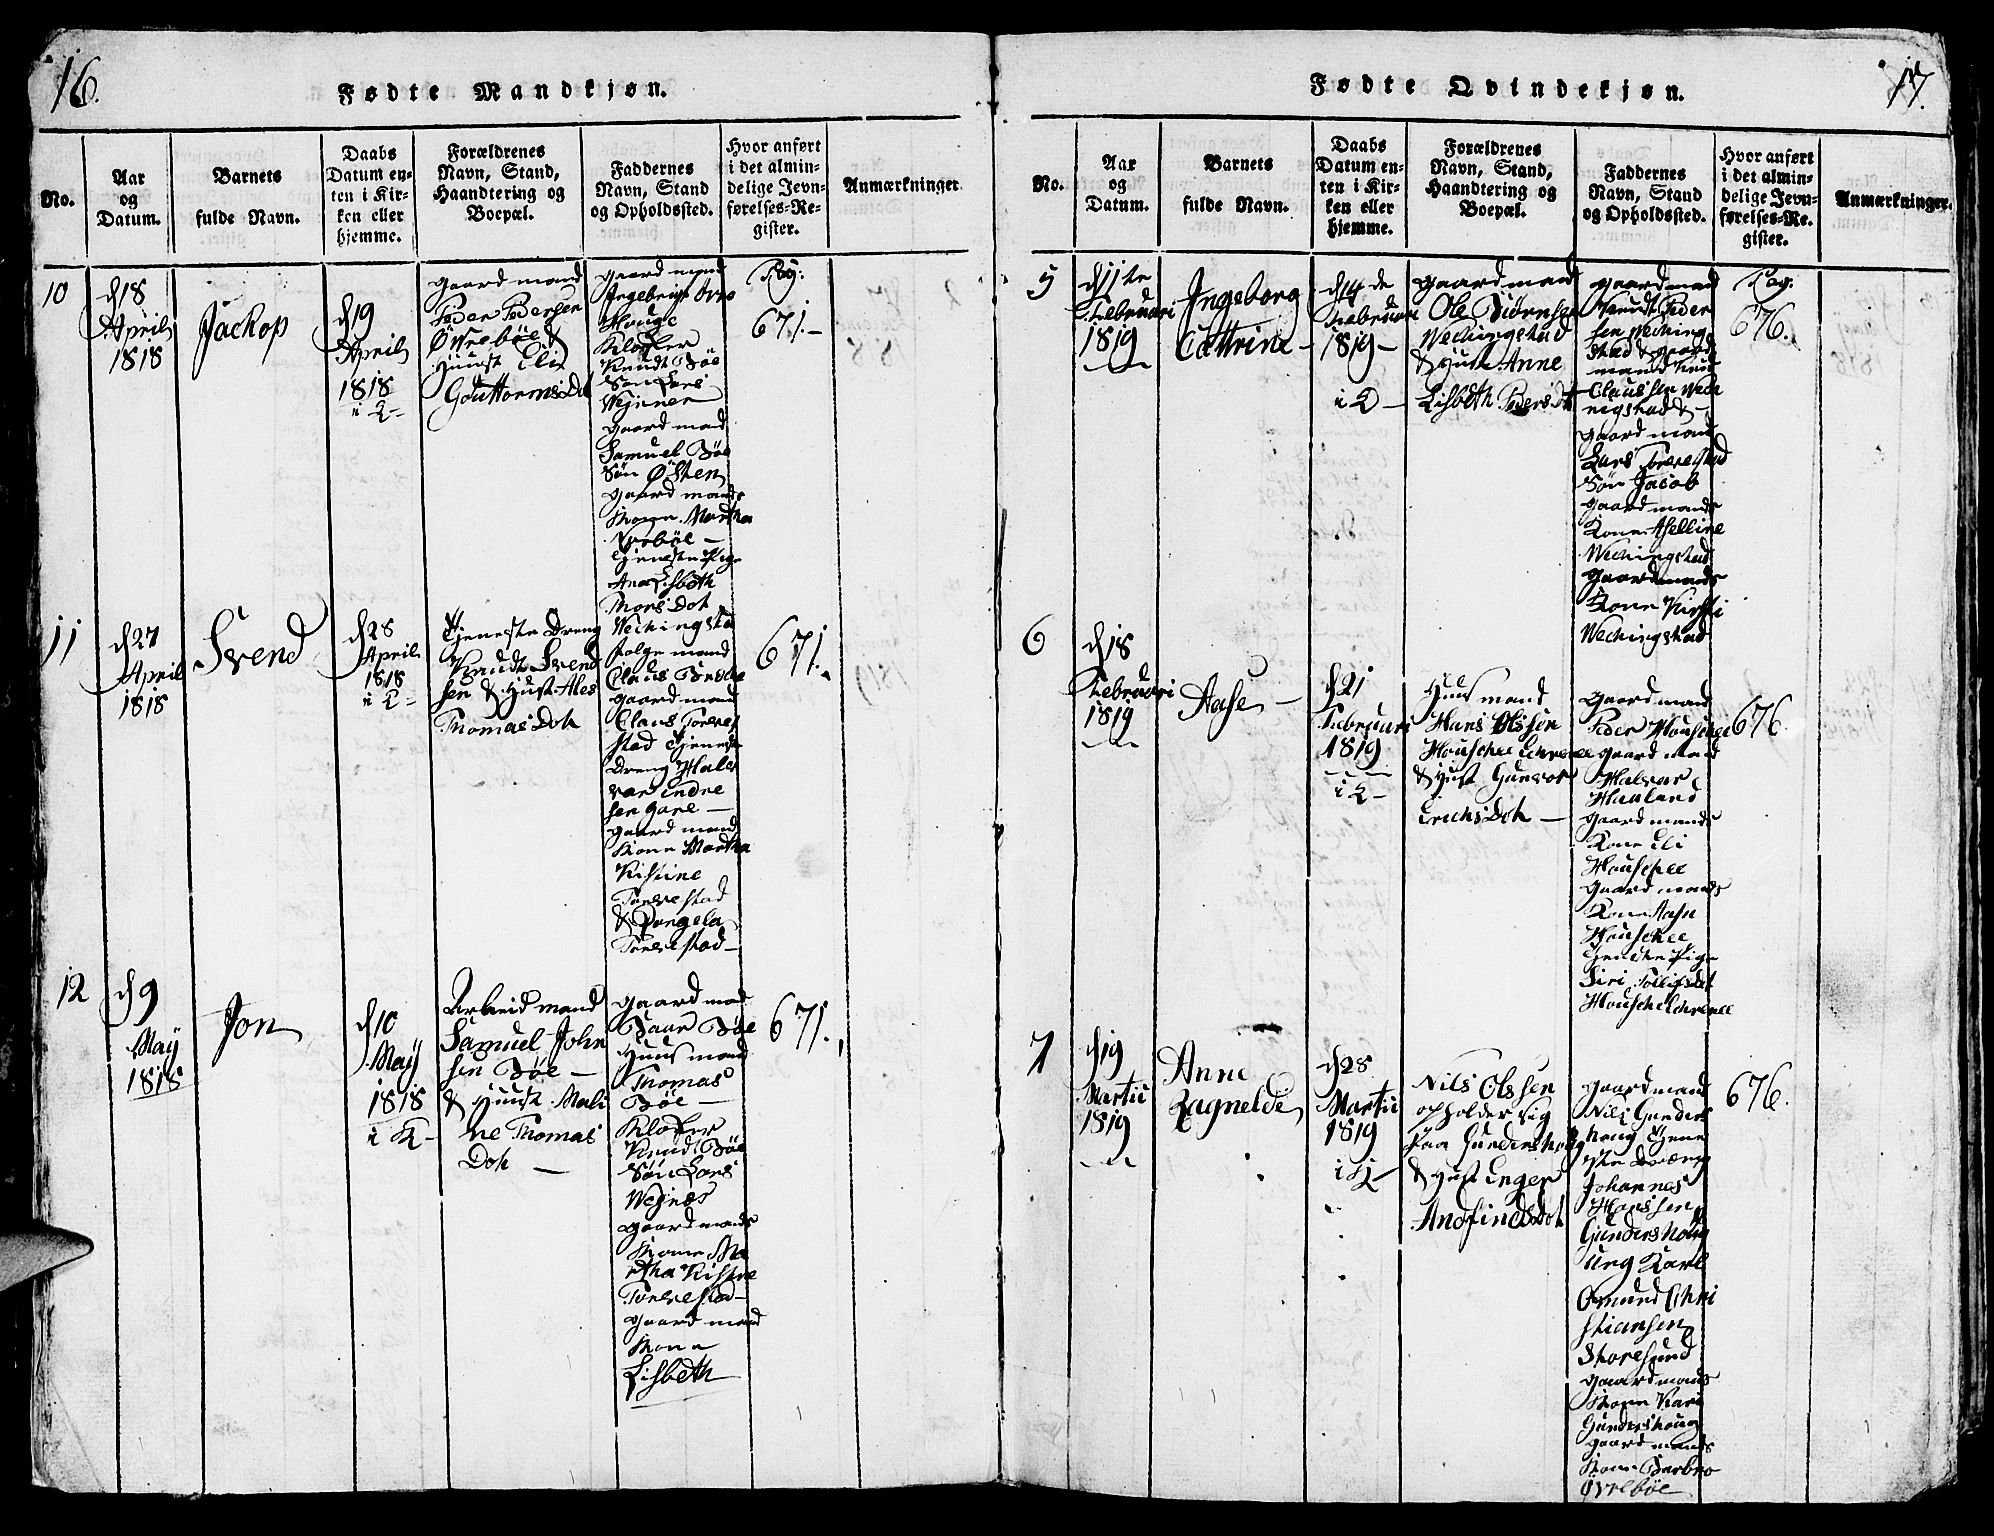 16.
Fødte Mandkjøn.
No.
Aar
og
Datum.
Barnets
fulde Navn.
Daabs
Datum en-
ten i Kir-
ken eller
hjemme.
Forældrenes
Navn, Stand,
Haandtering og
Boepæl.
Faddernes
Navn, Stand
og Opholdssted.
Hvor anført
i det almin-
delige Jevn-
førelses-Re-
gister.
Anmærkninger.
10
d 18
April
1818
Jackop
d 19
April
1818
i K-
gaard mand
Peder Pedersen
Øvrebøe &
Huust Eli
GouttormsDot
gaard mand
Houge
Klocker
Knudt Bøe
Søn Lars
gaard mand
Samuel Bøe
Søn Østen
gaard mands
Kone Martha
tjeneste Pige
Lisbeth
Thors Dot
Wechingsta
Pag:
671.-
11
d 27
April
1818
Svend
d 28
April
1818
i K-
Tjeneste Dreng
Knudt Svend
sen & Hust Ales
Thomas Dot
Claus
gaard mand
Claus Toreve
stad Tjeneste
Dreng Hal
gaard mand
Kone Martha
Kistine
Torvestad
&
Torvestad-
671.
12
d 9
May
1818
Jon
d 10
May
1818
i K-
Arbeid mand
Samuel John
sen Bøe -
& Huust Mali
ne Thomas
Dot -
gaard mad
Baar Bøe
Huus mand
Thomas
Bøe -
Klocker
Knud Bøe
Søn Lars
gaard mands
Kone Ma
rtha Kistine
Torvestad-
gaard mand
Kone
Lisbeth
671.
17.
Fødte Qvindekjøn.
No.
Aar
og
Datum.
Barnets
fulde Navn.
Daabs
Datum en-
ten i Kir-
ken eller
hjemme.
Forældrenes
Navn, Stand,
Haandtering og
Boepæl.
Faddernes
Navn, Stand
og Opholdssted.
Hvor anført
i det almin-
delige Jevn-
førelses-Re-
gister.
Anmærkninger.
5
d 11te
Februari
1819
Ingeborg
Cattrine-
d 14 de
Februari
1819-
i K-
gaard mand
Ole Biørnsen
Wechingstad
& Hust Anne
Lisbeth Peders Dot
gaard mad
Knudt Peder
sen Weching
stad & gaard
mand
Claussen Wech
ingstad & -
gaard mand
Lars Torvestad
Søn Jacob
gaard mands
Kone Aselline
Wechingstad
gaard mands
Kone Kirsti
Wechingstad
Pag:
676.
6
d 18
Februari
1819
Aase-
d 21
Februari
1819
i K-
Huus mand
Hans Olssen
& Hust Gunvor
Erichs Dot -
gaard mand
Peder Houschee
gaard mand
Halvar
Haaland
gaard mands
Kone Eli
Houschee
gaard mands
Kone Aase
Houschee
Tjenste Pige
Siri
676.
7
d 19
Martii
1819
Anne
Ragnelde
d 28
Martii
1819
i K-
Nils Olssen
opholder sig
paa Gundershoug
& Hust Enger
Anofinds Dot
gaard mand
Nils Gunders
houg Tjene
ste Dreng
Johannes
Hanssen
Gundershoug
ung Karl
Omund Chri
stiansen
Storesund
gaard mands
Kone Kari
Gundershoug
gaard mands
Kone Barbro
Øvrebøe
676.